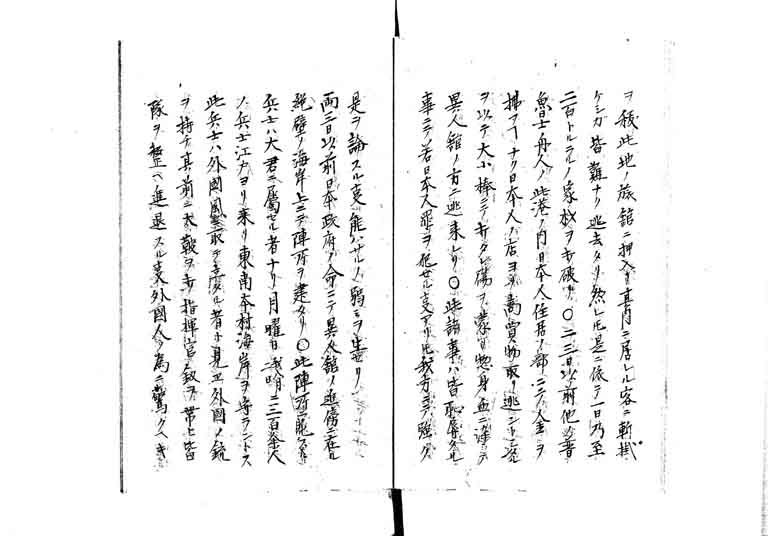 ヲ稼此地ノ旅舘ニ押入リ其内ニ居レル客ニ斬掛
ケシガ皆難ナク逃去タリ然レ𪜈是ニ依テ一日乃至
二百トルラルノ家杖ヲ打破リ〇二三日以前他ノ普
魯士舟人ノ此港ノ内日本人住居ノ部ニテ人金ヲ
拂フナク日本人ノ店ヨリ商賣物取リ逃ントセシ
ヲ以テ大小棒ニテ打タレ傷ヲ蒙リ惣身血ニ塗テ
異人舘ノ方ニ逃来レリ〇此諸事ハ皆恥辱タル
事ニテ若日本人罪ヲ犯セル事アリ𪜈我方ニテ強ク
是ヲ論スル事能ハサルノ弱ミヲ生セリ
両三日以前日本政府ノ命ニテ異人舘ノ近傍ニ在ル
絶壁ノ海岸上ニテ陣所ヲ建タリ〇此陣所ニ
兵士ハ大君ニ屬セル者ナリ月曜日 二三百餘人
ノ兵士江戸ヨリ来リ東南本村海岸ヲ守ラントス
此兵士ハ外國風 者ト見エ外國ノ銃
ヲ持チ其前ニ太鼓ヲ打指揮官釼ヲ帯ヒ皆
隊ヲ整ヘ進退スル事外國人ノ為ニ驚クヘキ